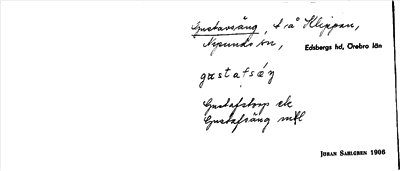 Gustavsäng, t. å Klippan,
Nysunds sn, Edsbergs hd, Örebro län
gustafsäŋ
Gustafstorp ek
Gustafsäng mtl
JÖRAN SAHLGREN 1906